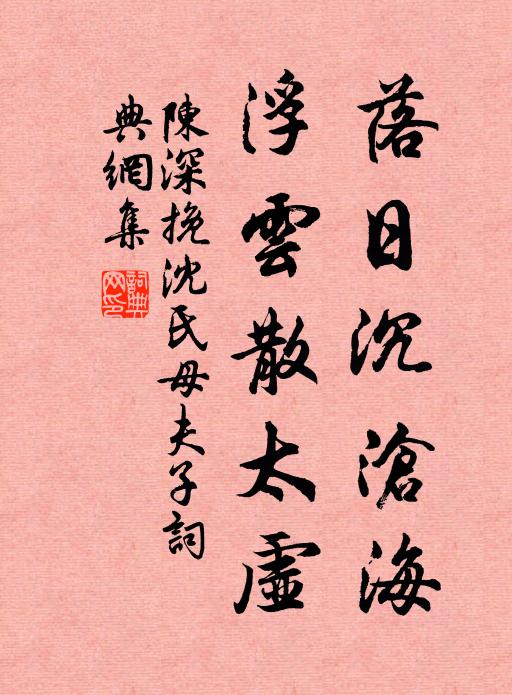 落日沉滄海
浮雲散太虛
陳深挽沈氏母夫子詞
典網集
詞典
網印